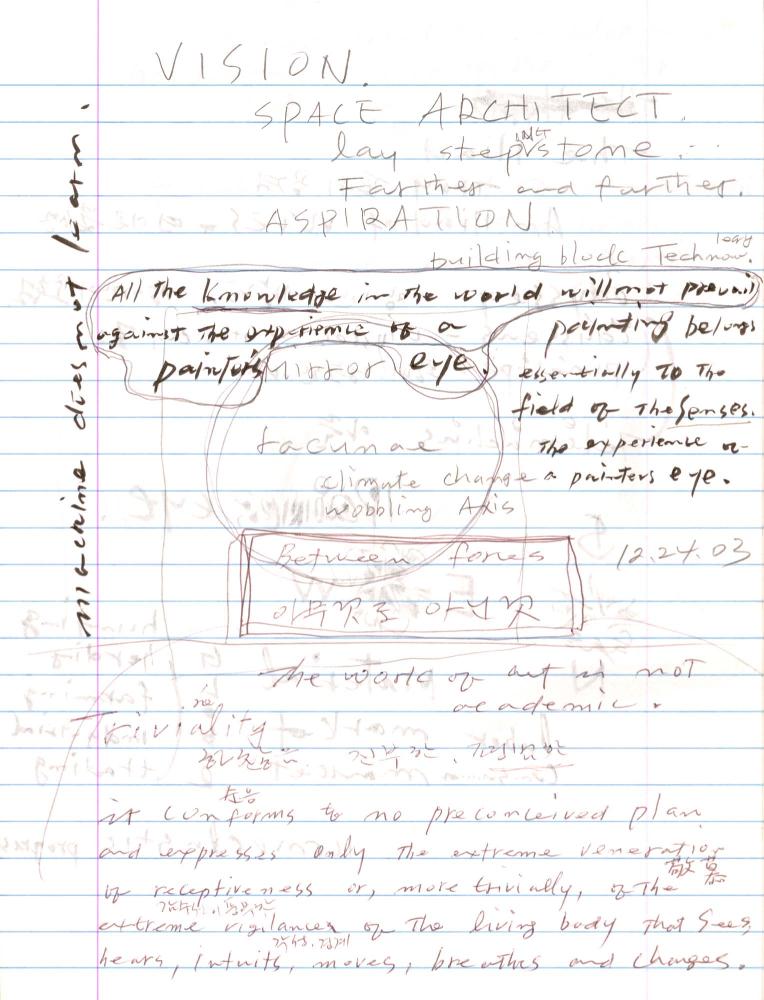 VISION.
SPACE ARCHITECT.
lay stepping stone.
Farther and further.
ASPIRATION
building block Technology.
machine does not learn.
All the knowledge in the world will not prevail
against the experience of a
painter's eye.
Mirror
painting belongs
essentially to the
field of the senses.
the experience of
a painters eye.
lacunae
climate change
wobbling Axis
Between forces
12.24.03
아무것도 아닌것
The work of art is not
academic.
Triviality
하찮음 진부한, 평범한
순응
it conforms to no preconceived plan
and expresses only the extreme veneration
敬慕
of receptiveness or, more trivially, of the
extreme vigilances of the living body that sees,
각성.경계
hears, intuits, moves, breathes and changes.